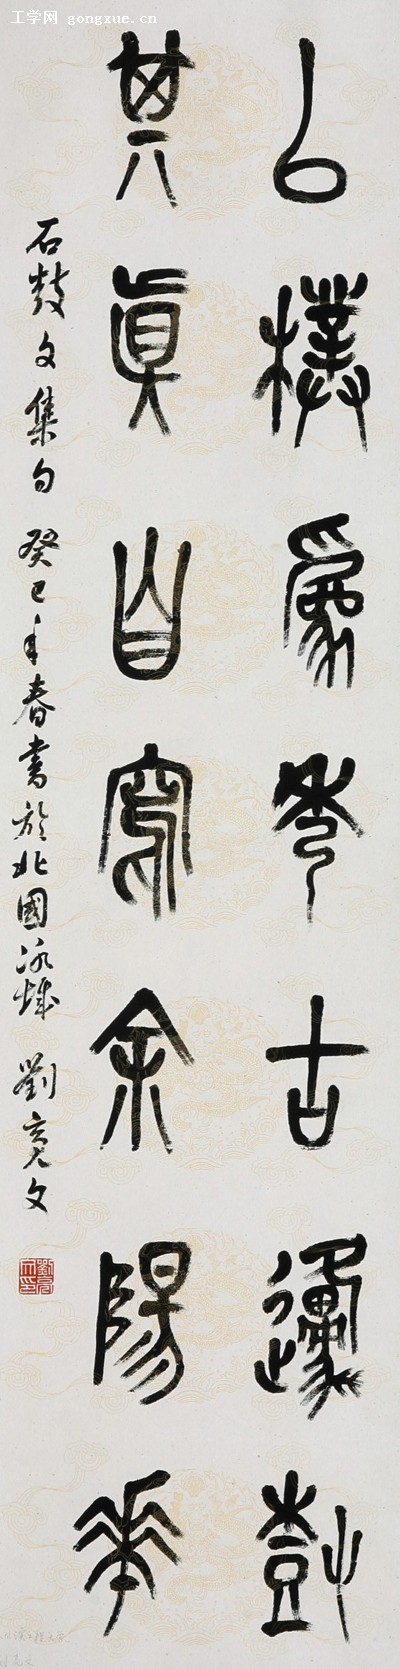 工学网 gongxue.cn
以樸為秀古邍尌
其真自寫余陽華
石鼓文集句 癸巳年春書於北國冰城 劉亮文